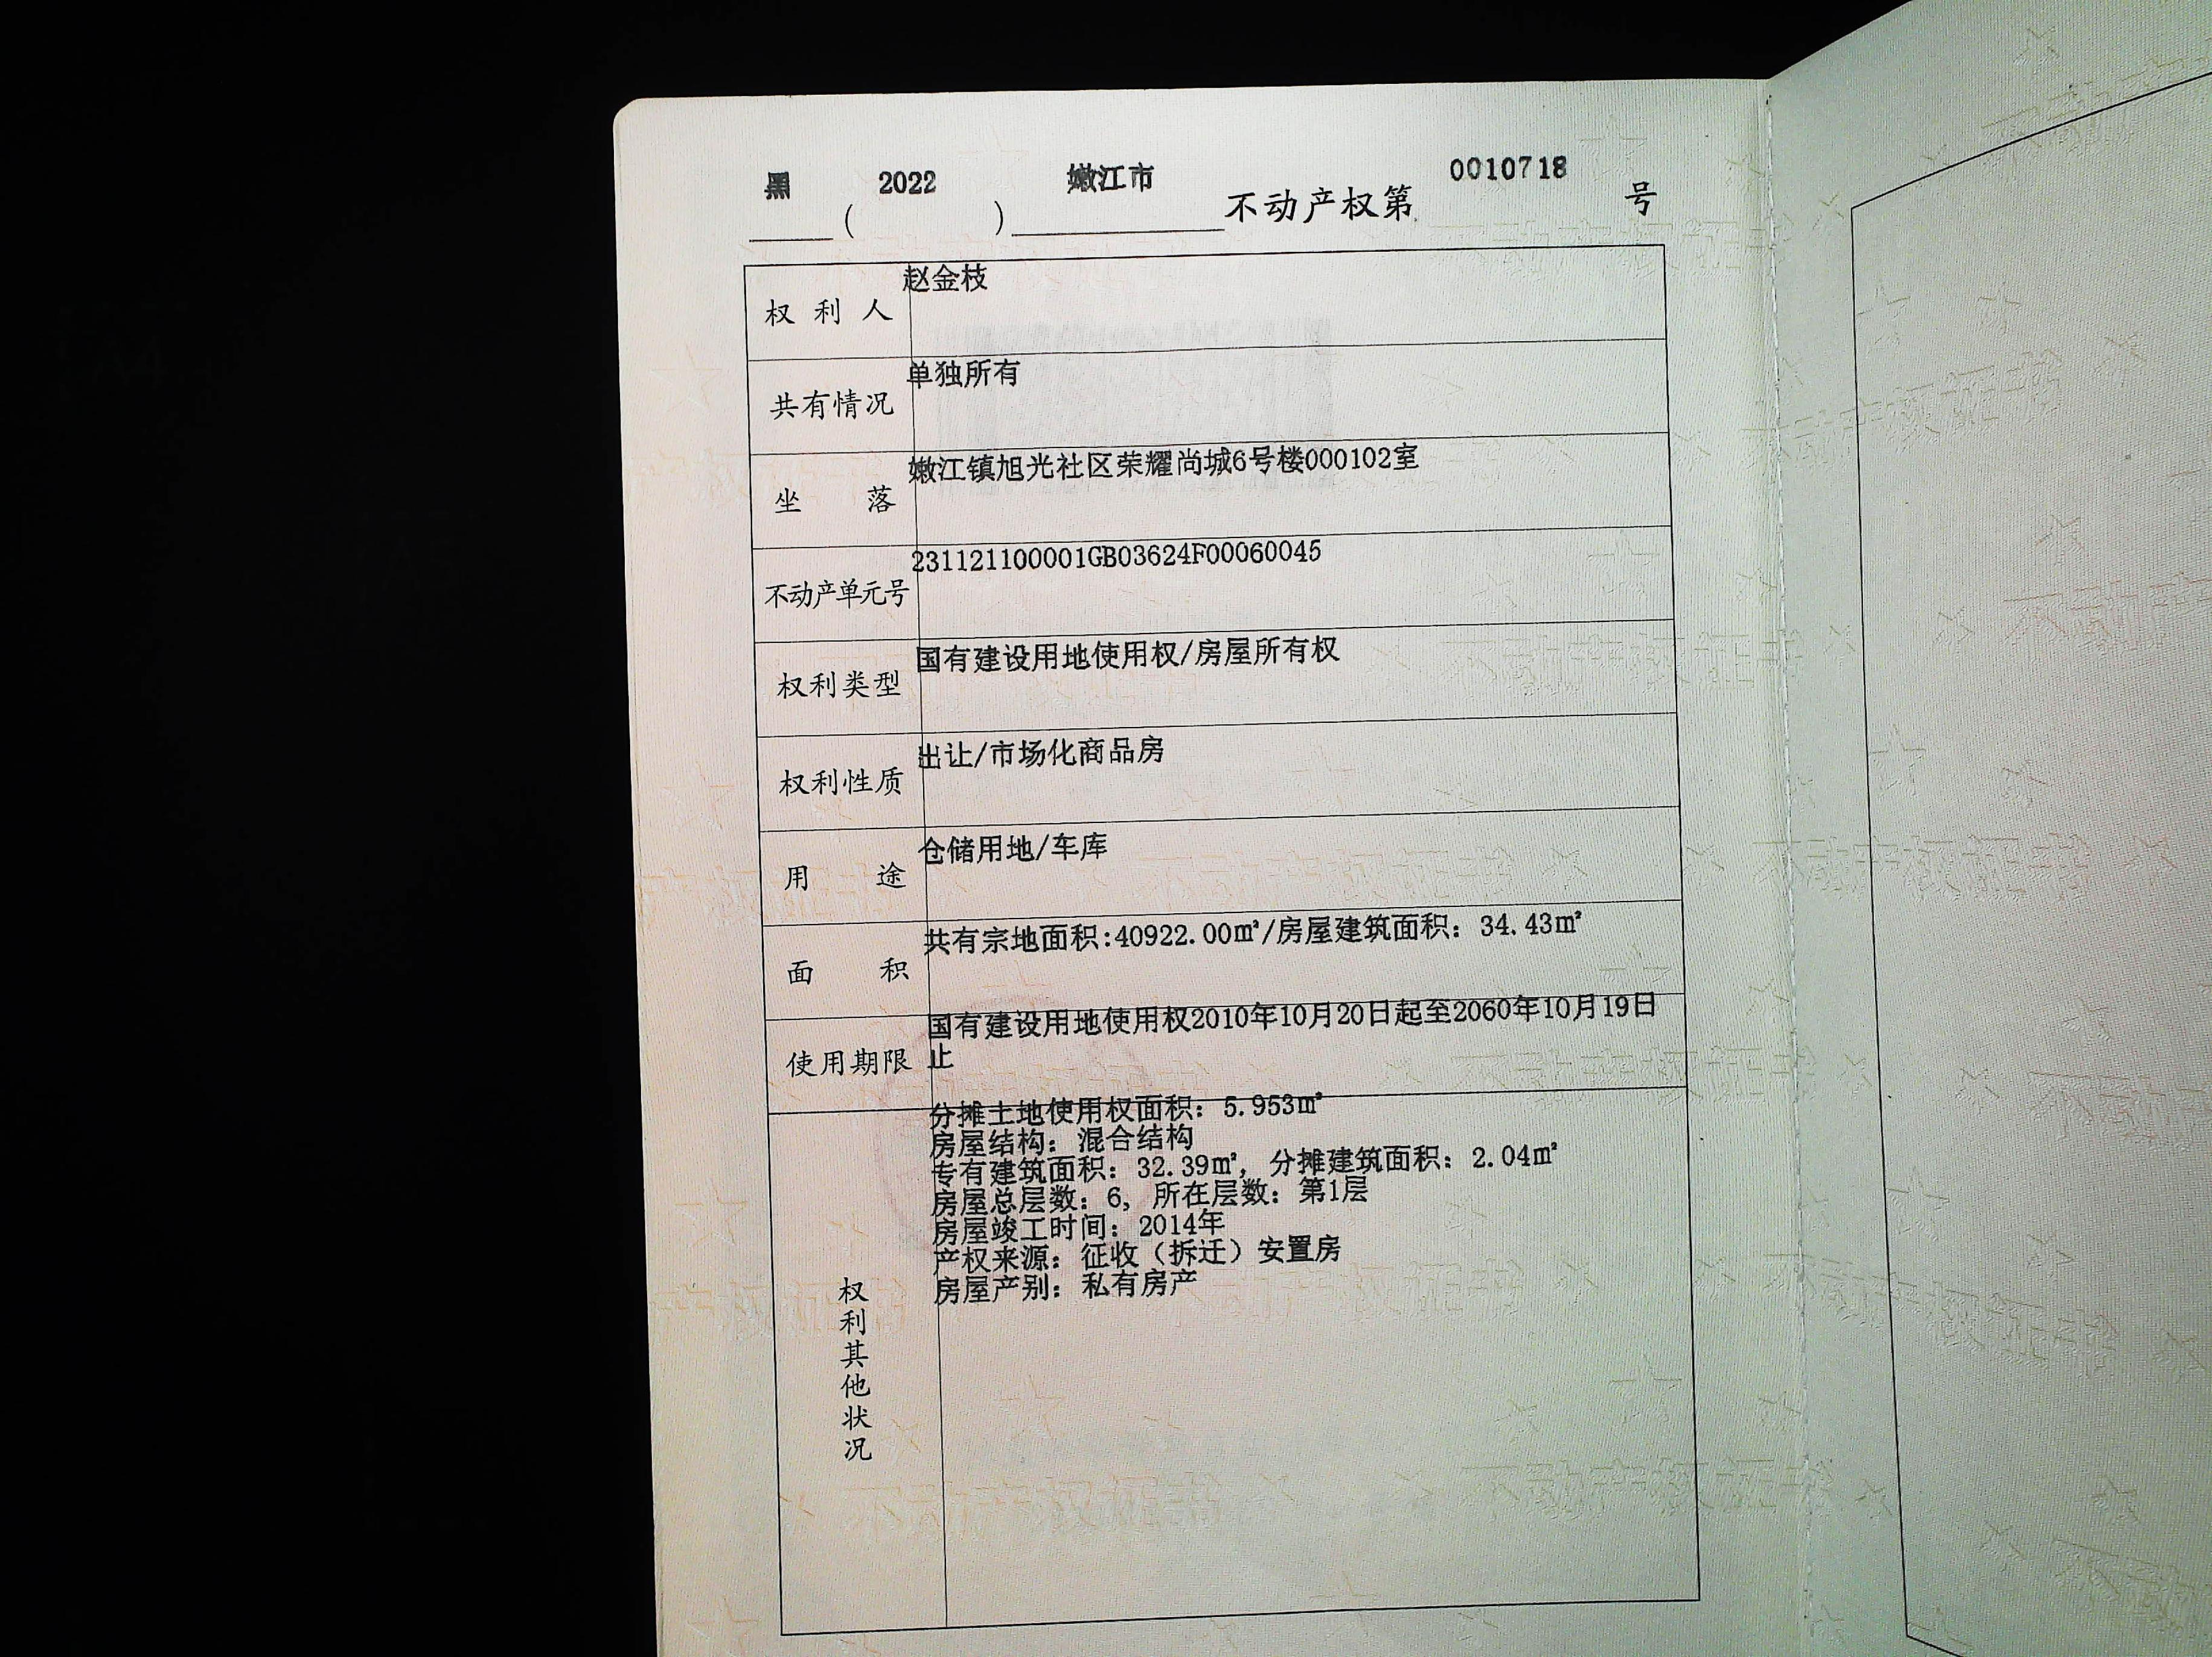 黑（2022）嫩江市不动产权第0010718号
权利人 赵金枝
共有情况 单独所有
坐落 嫩江镇旭光社区荣耀尚城6号楼000102室
不动产单元号 231121100001GB03624F00060045
权利类型 国有建设用地使用权/房屋所有权
权利性质 出让/市场化商品房
用途 仓储用地/车库
面积 共有宗地面积:40922.00㎡/房屋建筑面积：34.43㎡
使用期限 国有建设用地使用权2010年10月20日起至2060年10月19日
止
权利其他状况
分摊土地使用权面积：5.953㎡
房屋结构：混合结构
专有建筑面积：32.39㎡，分摊建筑面积：2.04㎡
房屋总层数：6，所在层数：第1层
房屋竣工时间：2014年
产权来源：征收（拆迁）安置房
房屋产别：私有房产